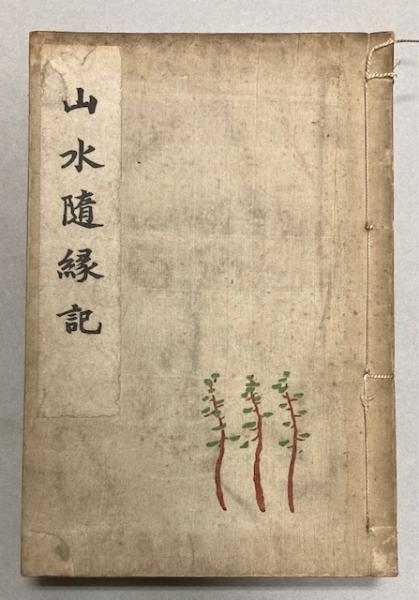 山水隨縁記